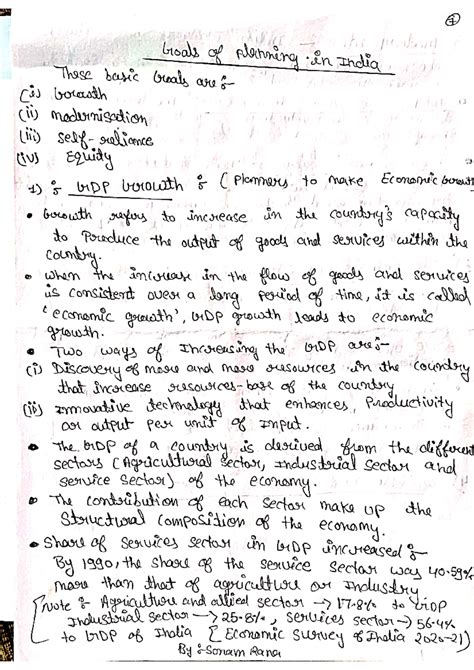 ④
Goals of planning in India
These basic Goals are :-
(i) Growth
(ii) modernisation
(iii) self-reliance
(iv) Equity
1) : GDP Growth : (Planners to make Economic Growth
• Growth refers to increase in the country's capacity
to Produce the output of goods and services within the
country.
• when the increase in the flow of goods and services
is consistent over a long period of time, it is called
'economic growth', GDP growth leads to economic
growth.
• Two ways of Increasing the GDP are :-
(i) Discovery of more and more resources in the country
that increase resources-base of the country
(ii) Innovative technology that enhances, Productivity
or output per unit of Input.
• The GDP of a country is derived from the different
sectors (Agricultural Sector, Industrial Sector and
service Sector) of the economy.
• The contribution of each Sector make up the
Structural Composition of the economy.
• Share of Services sector in GDP increased :-
By 1990, the share of the service Sector was 40.59%
more than that of agriculture or Industry
[Note :- Agriculture and allied sector → 17.8% to GDP
Industrial sector → 25.8%, services sector → 56.4%
to GDP of India [Economic Survey of India 2020-21)]
By :- Sonam